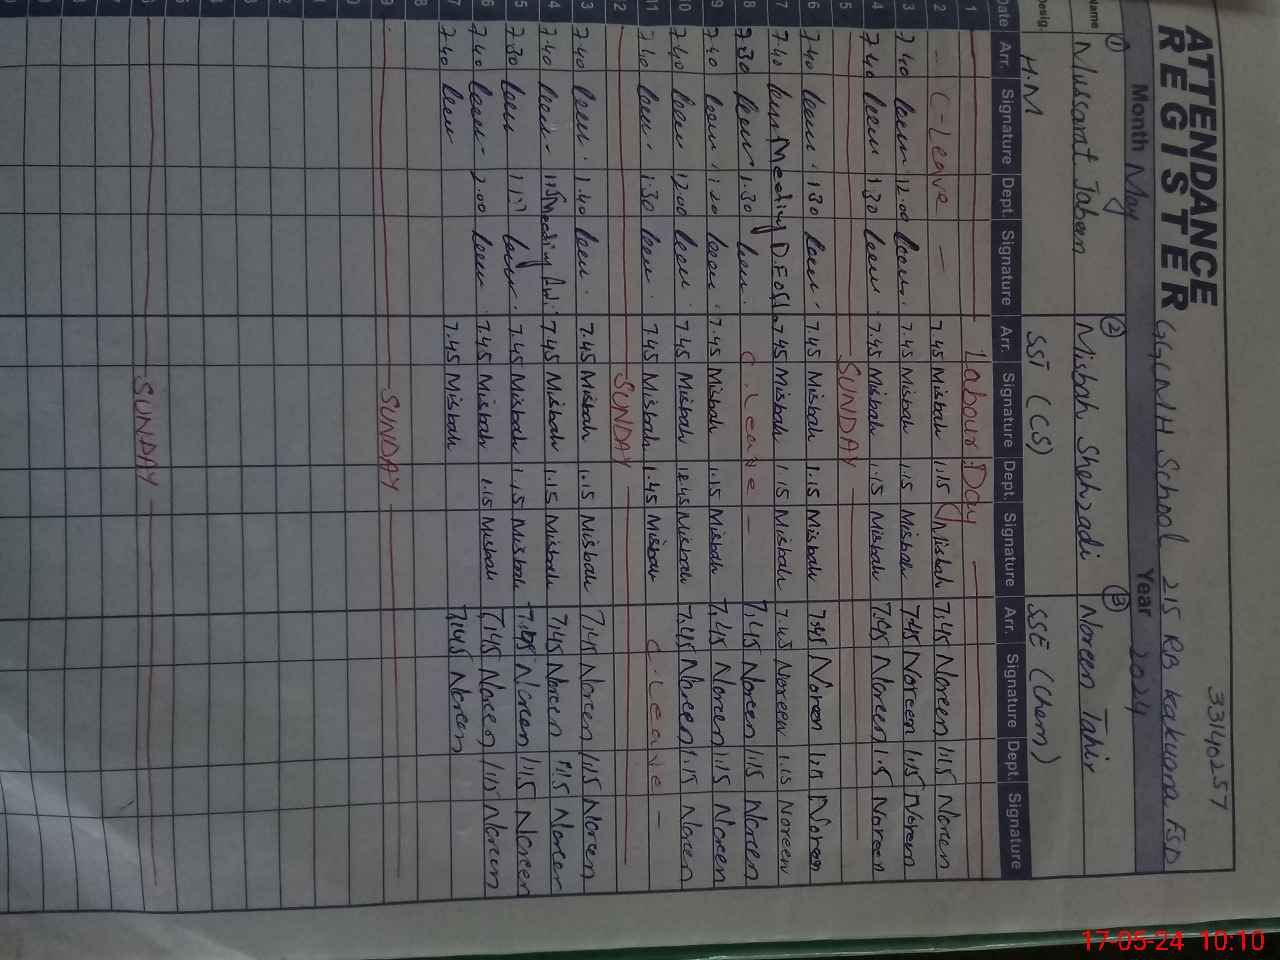 33140257
ATTENDANCE
REGISTER GGCMH School 215 RB Kakuana FSD
Month May Year 2024
Name ① Mussarat Jabeen ② Misbah Shehzadi ③ Noreen Tahir
Desig. H.M SST (CS) SSE (Chem)
Date Arr. Signature Dept. Signature Arr. Signature Dept. Signature Arr. Signature Dept. Signature
1 Labour Day
2 - C-Leave - 7.45 Misbah 1.15 Misbah 7.45 Noreen 1.15 Noreen
3 7.40 12.00 7.45 Misbah 1.15 Misbah 7.45 Noreen 1.15 Noreen
4 7.40 1.30 7.45 Misbah 1.15 Misbah 7.45 Noreen 1.15 Noreen
5 SUNDAY
6 7.40 1.30 7.45 Misbah 1.15 Misbah 7.45 Noreen 1.15 Noreen
7 7.40 Meeting 7.45 Misbah 1.15 Misbah 7.45 Noreen 1.15 Noreen
8 7.30 1.30 C.Leave - 7.45 Noreen 1.15 Noreen
9 7.40 1.20 7.45 Misbah 1.15 Misbah 7.45 Noreen 1.15 Noreen
10 7.40 12.00 7.45 Misbah 12.45 Misbah 7.45 Noreen 1.15 Noreen
11 7.40 1.30 7.45 Misbah 1.45 Misbah C.Leave -
12 SUNDAY
3 7.40 1.40 7.45 Misbah 1.15 Misbah 7.45 Noreen 1.15 Noreen
4 7.40 Meeting 7.45 Misbah 1.15 Misbah 7.45 Noreen 1.15 Noreen
5 7.30 7.45 Misbah 1.15 Misbah 7.45 Noreen 1.15 Noreen
6 7.40 2.00 7.45 Misbah 1.15 Misbah 7.45 Noreen 1.15 Noreen
7 7.40 7.45 Misbah 7.45 Noreen
8
9 SUNDAY
0
1
2
3
4
5
6 SUNDAY
17-05-24 10:10